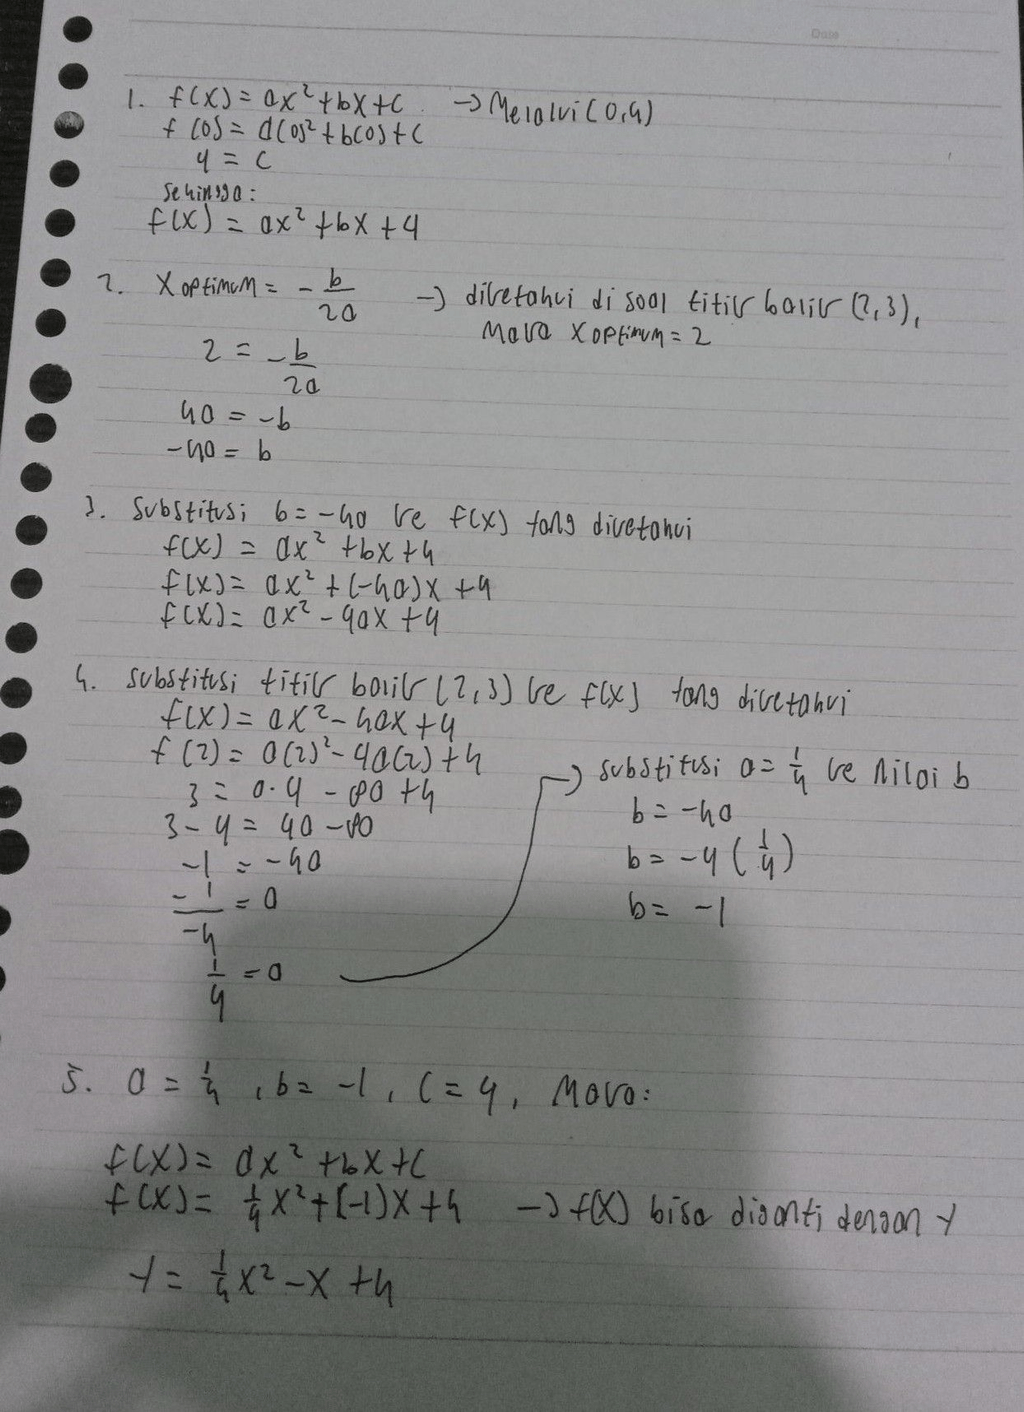 Date
1. f(x) = ax² + bx + c → Melalui (0,4)
f(0) = a(0)² + b(0) + c
4 = c
sehingga:
f(x) = ax² + bx + 4
2. x optimum = -b/2a → diketahui di soal titik balik (2,3),
Maka x optimum = 2
2 = -b/2a
4a = -b
-4a = b
3. Substitusi b = -4a ke f(x) yang diketahui
f(x) = ax² + bx + 4
f(x) = ax² + (-4a)x + 4
f(x) = ax² - 4ax + 4
4. substitusi titik balik (2,3) ke f(x) yang diketahui
f(x) = ax² - 4ax + 4
f(2) = a(2)² - 4a(2) + 4
3 = a·4 - 8a + 4
3 - 4 = 4a - 8a
-1 = -4a
-1/-4 = a
1/4 = a
→ substitusi a = 1/4 ke nilai b
b = -4a
b = -4(1/4)
b = -1
5. a = 1/4, b = -1, c = 4, Maka:
f(x) = ax² + bx + c
f(x) = 1/4x² + (-1)x + 4 → f(x) bisa diganti dengan y
y = 1/4x² - x + 4